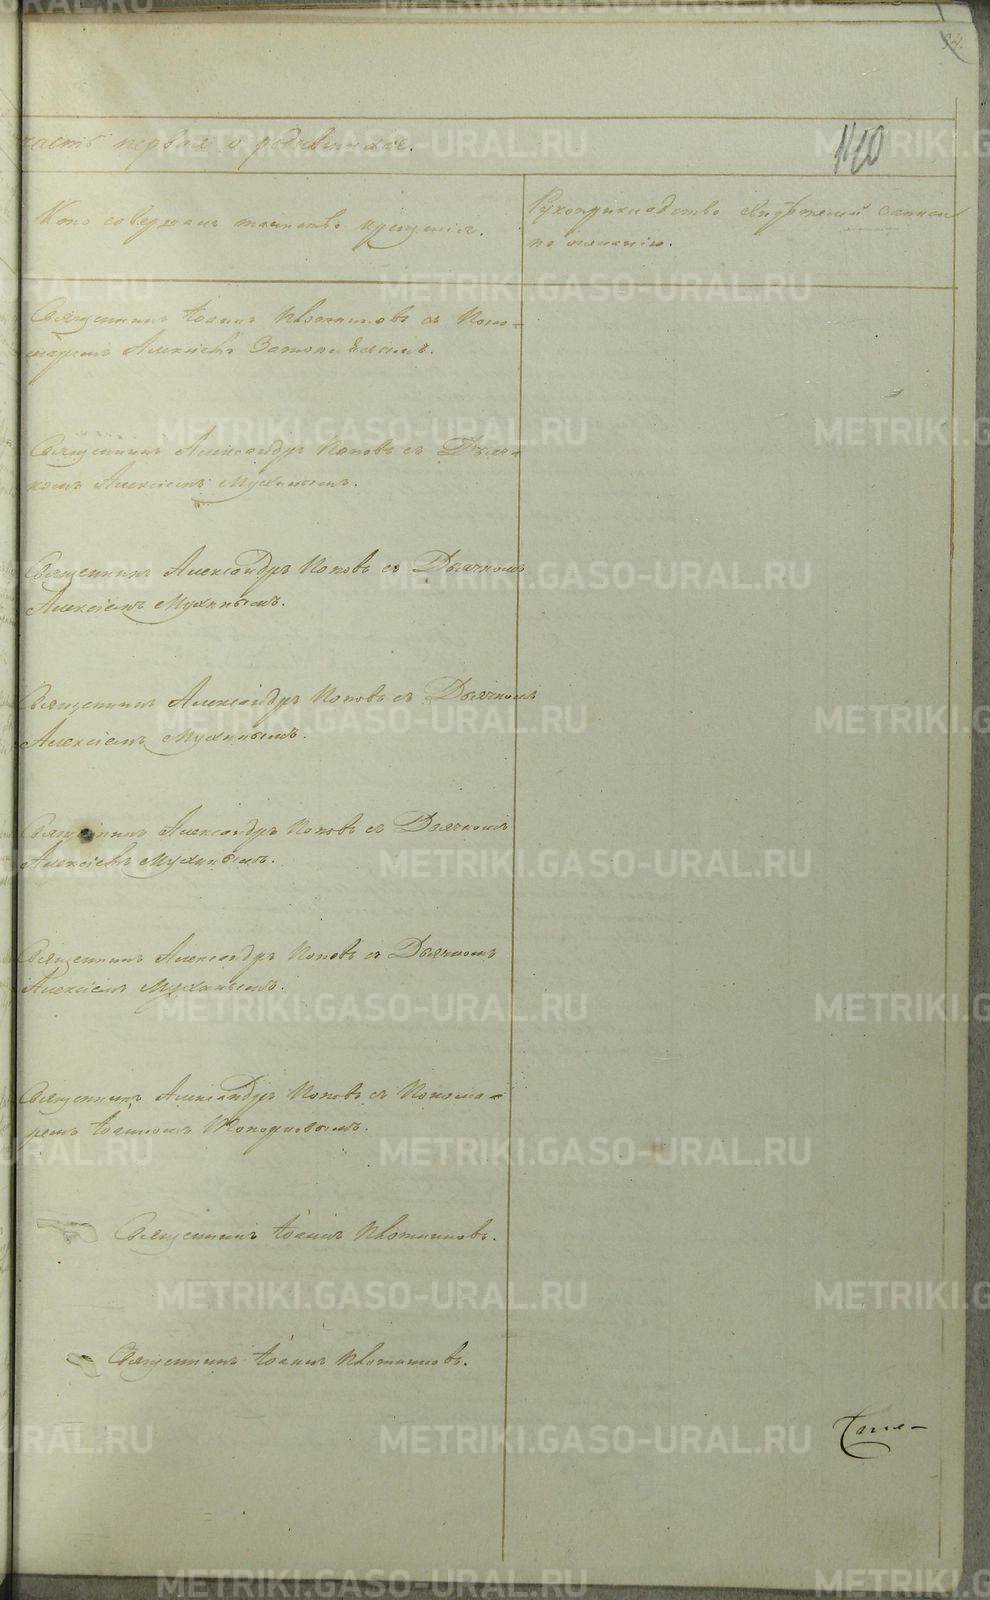 94.
часть первая о родившихся.
140
Кто совершалъ таинство крещенія.
Рукоприкладство свидѣтелей записи
по желанію.
Священникъ Іоаннъ Ивотиновъ съ Поно-
маремъ Алексѣемъ
Священникъ Александръ Поповъ съ Дьяч-
комъ Алексіемъ Мухинымъ.
Священникъ Александръ Поповъ съ Дьячкомъ
Алексіемъ Мухинымъ.
Священникъ Александръ Поповъ съ Дьячкомъ
Алексіемъ Мухинымъ.
Священникъ Александръ Поповъ съ Дьячкомъ
Алексіемъ Мухинымъ.
Священникъ Александръ Поповъ съ Дьячкомъ
Алексіемъ Мухинымъ.
Священникъ Александръ Поповъ съ Понома-
ремъ Іоанномъ Топорковымъ.
Священникъ Іоаннъ Ивотиновъ.
Священникъ Іоаннъ Ивотиновъ.
METRIKI.GASO-URAL.RU